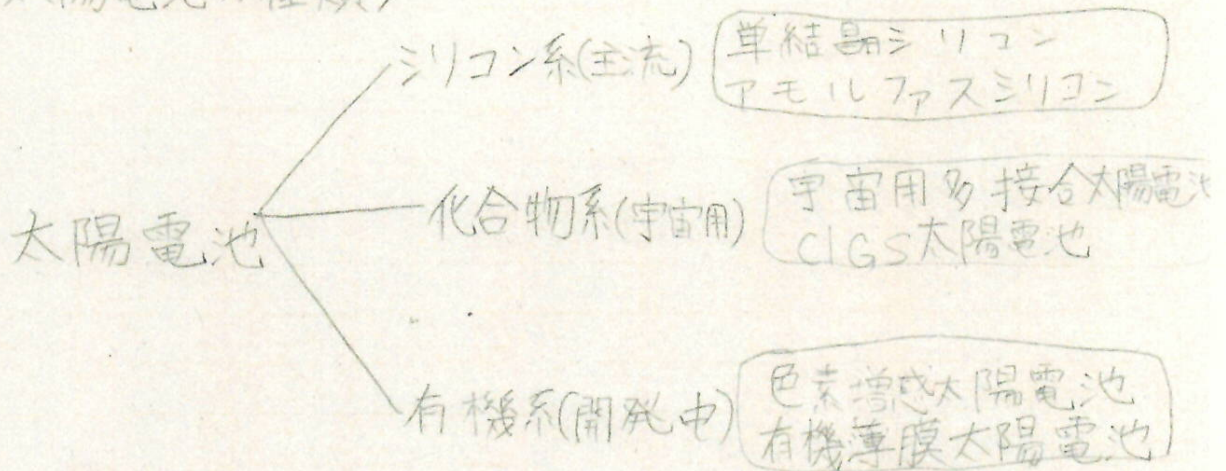 太陽電池の種類)
シリコン系(主流)
単結晶シリコン
アモルファスシリコン
太陽電池
化合物系(宇宙用)
宇宙用多接合太陽電池
CIGS太陽電池
有機系(開発中)
色素増感太陽電池
有機薄膜太陽電池